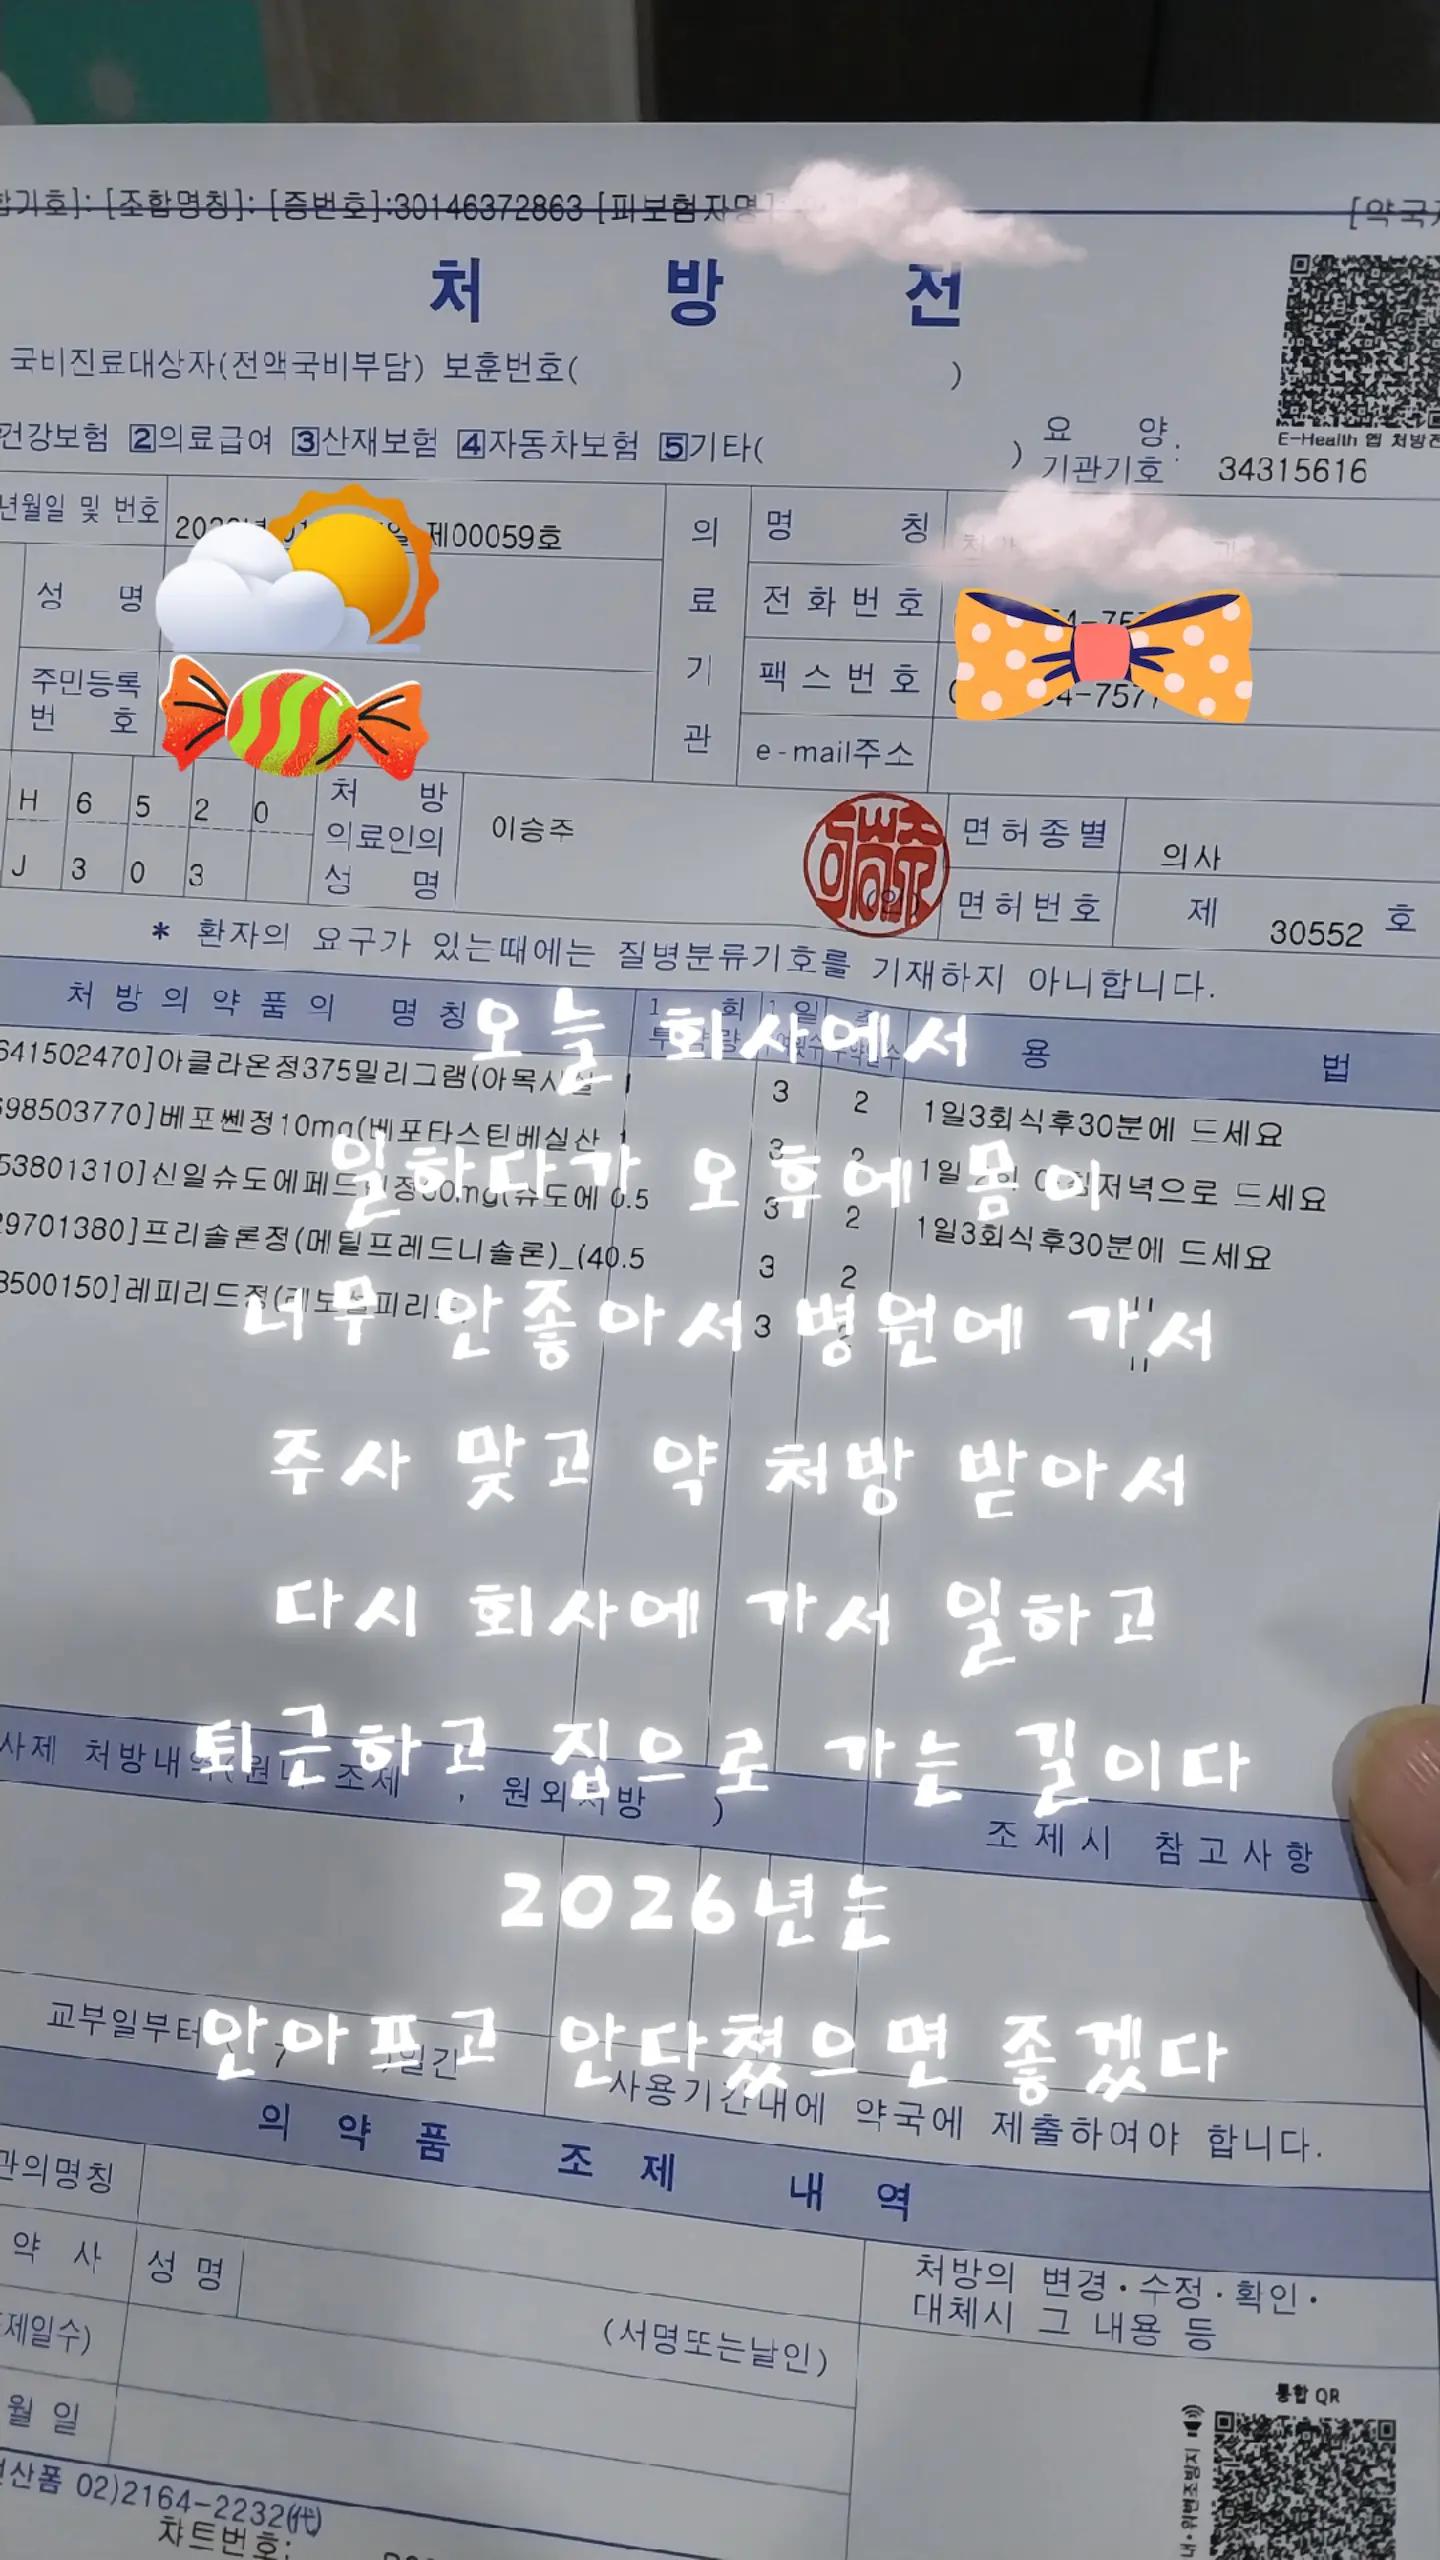 합기호]: [조합명칭]: [증번호]:30146372863 [피보험자명]
[약국
처 방 전
국비진료대상자(전액국비부담) 보훈번호( )
건강보험 2의료급여 3산재보험 4자동차보험 5기타( )
요 양
기관기호 : 34315616
E-Health 앱 처방전
년월일 및 번호
제00059호
성 명
주민등록
번 호
의
료
기
관
명 칭
전화번호
팩스번호
e-mail주소
H 6 5 2 0
J 3 0 3
처 방
의료인의
성 명
이승주
(인)
면허종별
의사
면허번호
제 30552 호
* 환자의 요구가 있는때에는 질병분류기호를 기재하지 아니합니다.
처방의약품의 명칭
용 법
641502470]아클라온정375밀리그램(아목시실 1 3 2 1일3회식후30분에 드세요
698503770]베포쎈정10mg(베포타스틴베실산 1 3 2 저녁으로 드세요
53801310]신일슈도에페드 정60mg(슈도에 0.5 3 2 1일3회식후30분에 드세요
29701380]프리솔론정(메틸프레드니솔론)_(40.5 3 2 "
8500150]레피리드정(레보설피리드 3 "
오늘 회사에서
일하다가 오후에 몸이
너무 안좋아서 병원에 가서
주사 맞고 약 처방 받아서
다시 회사에 가서 일하고
퇴근하고 집으로 가는 길이다
2026년는
안아프고 안다쳤으면 좋겠다
사제 처방내역(원내 조제 , 원외처방 )
조제시 참고사항
교부일부터 7 일간
사용기간내에 약국에 제출하여야 합니다.
의약품 조제 내역
관의명칭
약 사 성 명
(서명또는날인)
처방의 변경·수정·확인·
대체시 그 내용 등
제일수)
월 일
전산폼 02)2164-2232(代)
챠트번호:
통합 QR